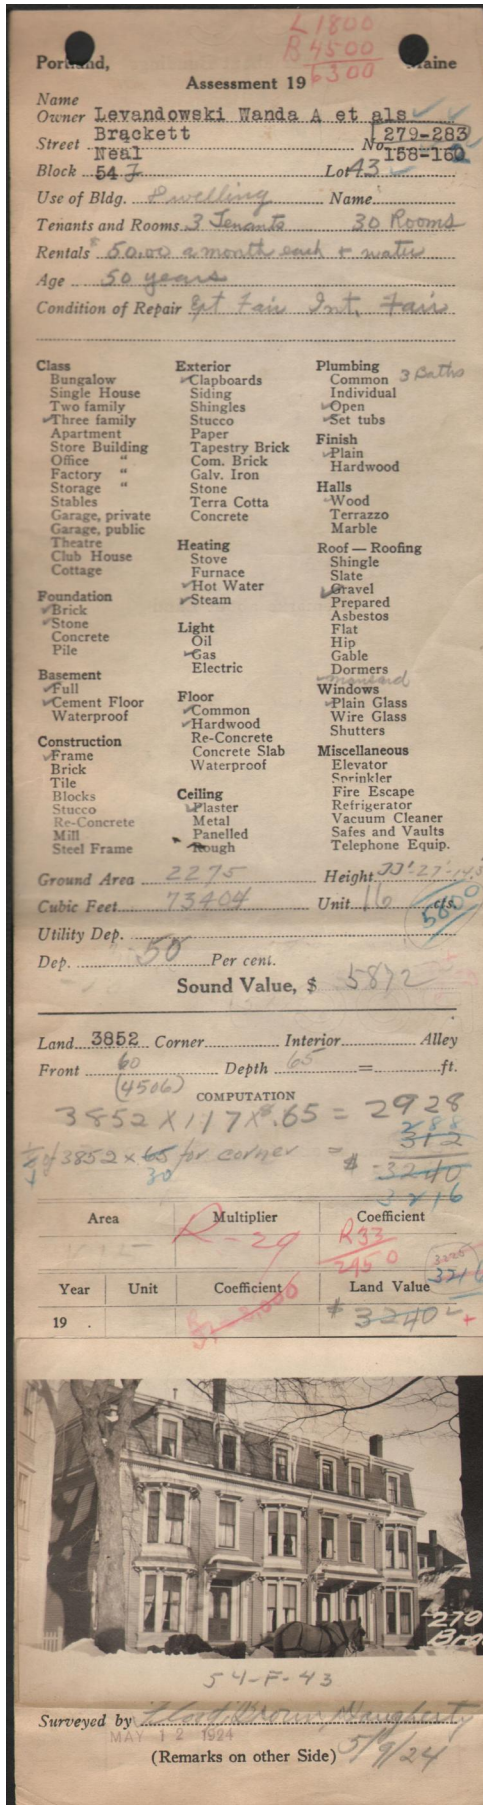 L 1800
B 4500
6300
Portland, Maine
Assessment 19
Name
Owner Levandowski Wanda A et als
Street Brackett No. 279-283
Neal 158-160
Block 54 F Lot 43
Use of Bldg. Dwelling Name
Tenants and Rooms 3 Tenants 30 Rooms
Rentals 50.00 a month each + water
Age 50 years
Condition of Repair Ext Fair Int. Fair
Class
Bungalow
Single House
Two family
Three family
Apartment
Store Building
Office "
Factory "
Storage "
Stables
Garage, private
Garage, public
Theatre
Club House
Cottage
Foundation
Brick
Stone
Concrete
Pile
Basement
Full
Cement Floor
Waterproof
Construction
Frame
Brick
Tile
Blocks
Stucco
Re-Concrete
Mill
Steel Frame
Exterior
Clapboards
Siding
Shingles
Stucco
Paper
Tapestry Brick
Com. Brick
Galv. Iron
Stone
Terra Cotta
Concrete
Heating
Stove
Furnace
Hot Water
Steam
Light
Oil
Gas
Electric
Floor
Common
Hardwood
Re-Concrete
Concrete Slab
Waterproof
Ceiling
Plaster
Metal
Panelled
Rough
Plumbing
Common 3 Baths
Individual
Open
Set tubs
Finish
Plain
Hardwood
Halls
Wood
Terrazzo
Marble
Roof — Roofing
Shingle
Slate
Gravel
Prepared
Asbestos
Flat
Hip
Gable
Dormers
mansard
Windows
Plain Glass
Wire Glass
Shutters
Miscellaneous
Elevator
Sprinkler
Fire Escape
Refrigerator
Vacuum Cleaner
Safes and Vaults
Telephone Equip.
Ground Area 2275 Height
Cubic Feet 73404 Unit 16 cts.
5800
Utility Dep.
Dep. 50 Per cent.
Sound Value, $ 5872
Land 3852 Corner Interior Alley
Front 60 Depth 65 = ft.
(4506)
COMPUTATION
3852 X 117 X $.65 = 2928
288
312
of 3852 x 65 for corner = $ 3240
30 3216
Area Multiplier Coefficient
R-29 R33
2450
3216
Year Unit Coefficient Land Value
19 . $ 3240
279
Bra
54-F-43
Surveyed by Lloyd Brown, Daugherty
MAY 12 1924
(Remarks on other Side) 5/9/24